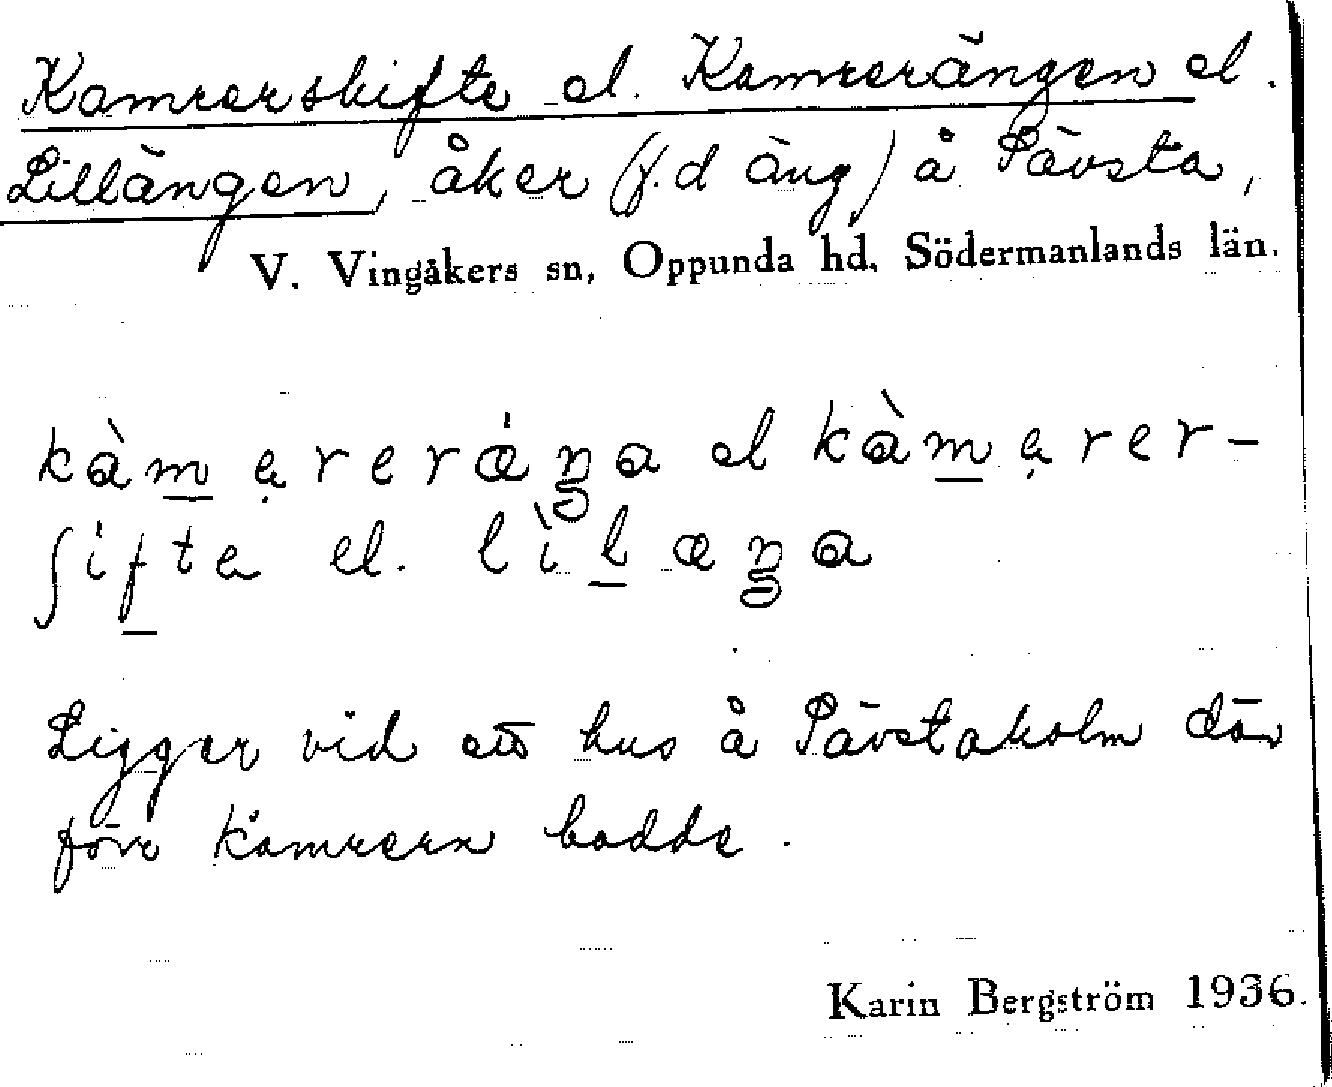 Kamrerskifte el. Kamrerängen el.
Lillängen, åker (f.d äng) å Pävsta,
V. Vingåkers sn, Oppunda hd, Södermanlands län.
kàm̲ ẹrerǽŋa el kàm̲ẹrer-
ʃif̲te el. lìl̲æŋa
Ligger vid ett hus å Pävstaholm där
förr kamrern bodde.
Karin Bergström 1936.